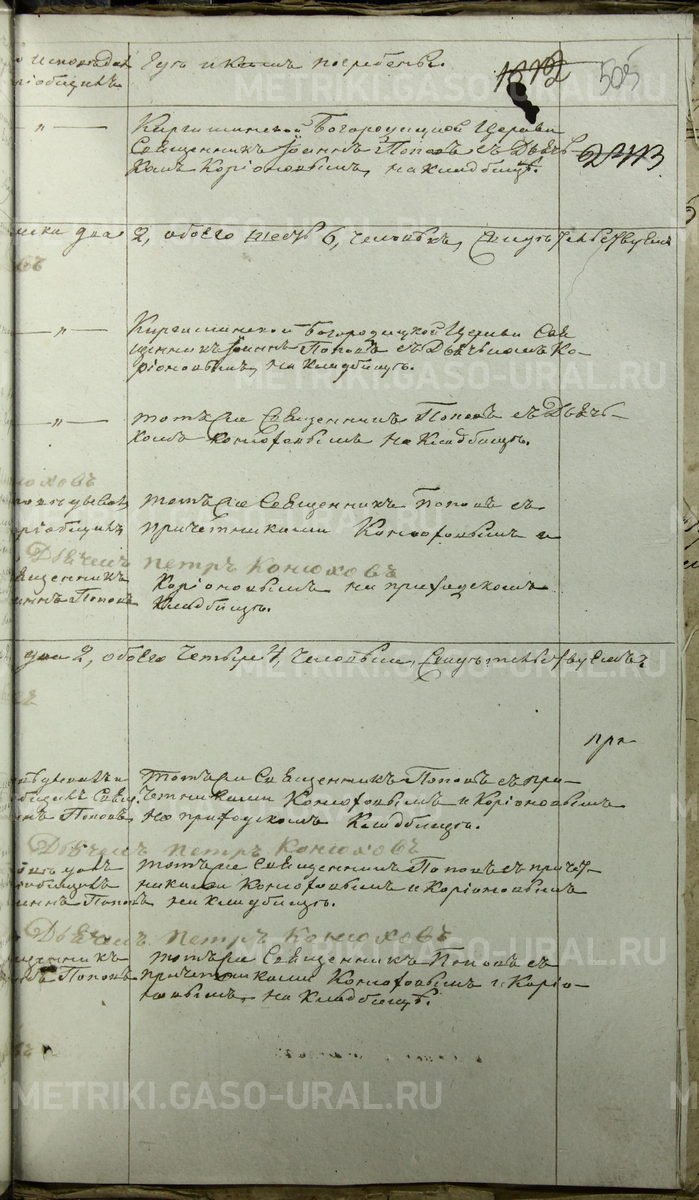 Гдѣ и кѣмъ погребены.
1612 505
Киргишинской Богородицкой Церкви
Священникъ Іоаннъ Поповъ съ Дьяч-
комъ Коріоновымъ, на кладбищѣ.
2413
ника два 2, обоего шесть 6, человѣкъ, Свидѣтельствуемъ
Киргишинской Богородицкой Церкви Свя-
щенникъ Іоаннъ Поповъ съ Дьячькомъ Ко-
ріоновымъ, на кладбищѣ.
тотъ же Священникъ Поповъ съ Дьячь-
комъ Конюховымъ на кладбищѣ.
нюховъ
тотъ же Священникъ Поповъ съ
причетниками Конюховымъ и
Дьячекъ Петръ Конюховъ
Священникъ Коріоновымъ на приходскомъ
Іоаннъ Поповъ кладбищѣ.
два 2, обоего четыре 4, человѣка, Свидѣтельствуемъ
при
тотъ же Священникъ Поповъ съ при-
четниками Конюховымъ и Коріоновымъ
Поповъ на приходскомъ кладбищѣ.
Дьячекъ Петръ Конюховъ
тотъ же Священникъ Поповъ съ причет-
никами Конюховымъ и Коріоновымъ
Іоаннъ Поповъ на кладбищѣ.
Дьячекъ Петръ Конюховъ
Священникъ тотъ же Священникъ Поповъ съ
Поповъ причетниками Конюховымъ и Коріо-
новымъ, на кладбищѣ.
METRIKI.GASO-URAL.RU